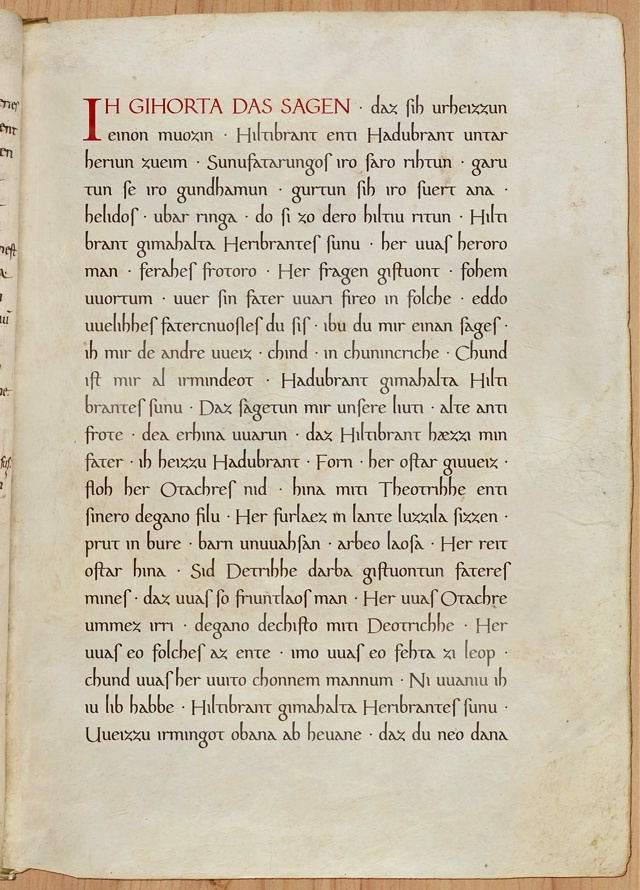 IH GIHORTA DAS SAGEN · daz ſih urheizzun
einon muozin · Hiltibrant enti Hadubrant untar
heriun zueim · Sunufatarungoſ iro ſaro rihtun · garu
tun ſe iro gundhamun · gurtun ſih iro ſuert ana ·
helidoſ · ubar ringa · do ſi zo dero hiltiu ritun · Hilti
brant gimahalta Heribranteſ ſunu · her uuaſ heroro
man · feraheſ frotoro · Her fragen giſtuont · fohem
uuortum · uuer ſin fater uuari fireo in folche · eddo
uuelihheſ fatercnuoſleſ du ſiſ · ibu du mir einan ſageſ ·
ih mir de andre uueiz · chind · in chunincriche · Chund
iſt mir al irmindeot · Hadubrant gimahalta Hilti
branteſ ſunu · Daz ſagetun mir unſere liuti · alte anti
frote · dea erhina uuarun · daz Hiltibrant hæzzi min
fater · ih heizzu Hadubrant · Forn · her oſtar giuueiz ·
floh her Otachreſ nid · hina miti Theotrihhe enti
ſinero degano filu · Her furlaez in lante luzzila ſizzen ·
prut in bure · barn unuuahſan · arbeo laoſa · Her reit
oſtar hina · Sid Detrihhe darba giſtuontun fatereſ
mineſ · daz uuaſ ſo friuntlaoſ man · Her uuaſ Otachre
ummez irri · degano dechiſto miti Deotrichhe · Her
uuaſ eo folcheſ az ente · imo uuaſ eo fehta zi leop ·
chund uuaſ her uuito chonnem mannum · Ni uuaniu ih
iu lib habbe · Hiltibrant gimahalta Heribranteſ ſunu ·
Uueizzu irmingot obana ab heuane · daz du neo dana